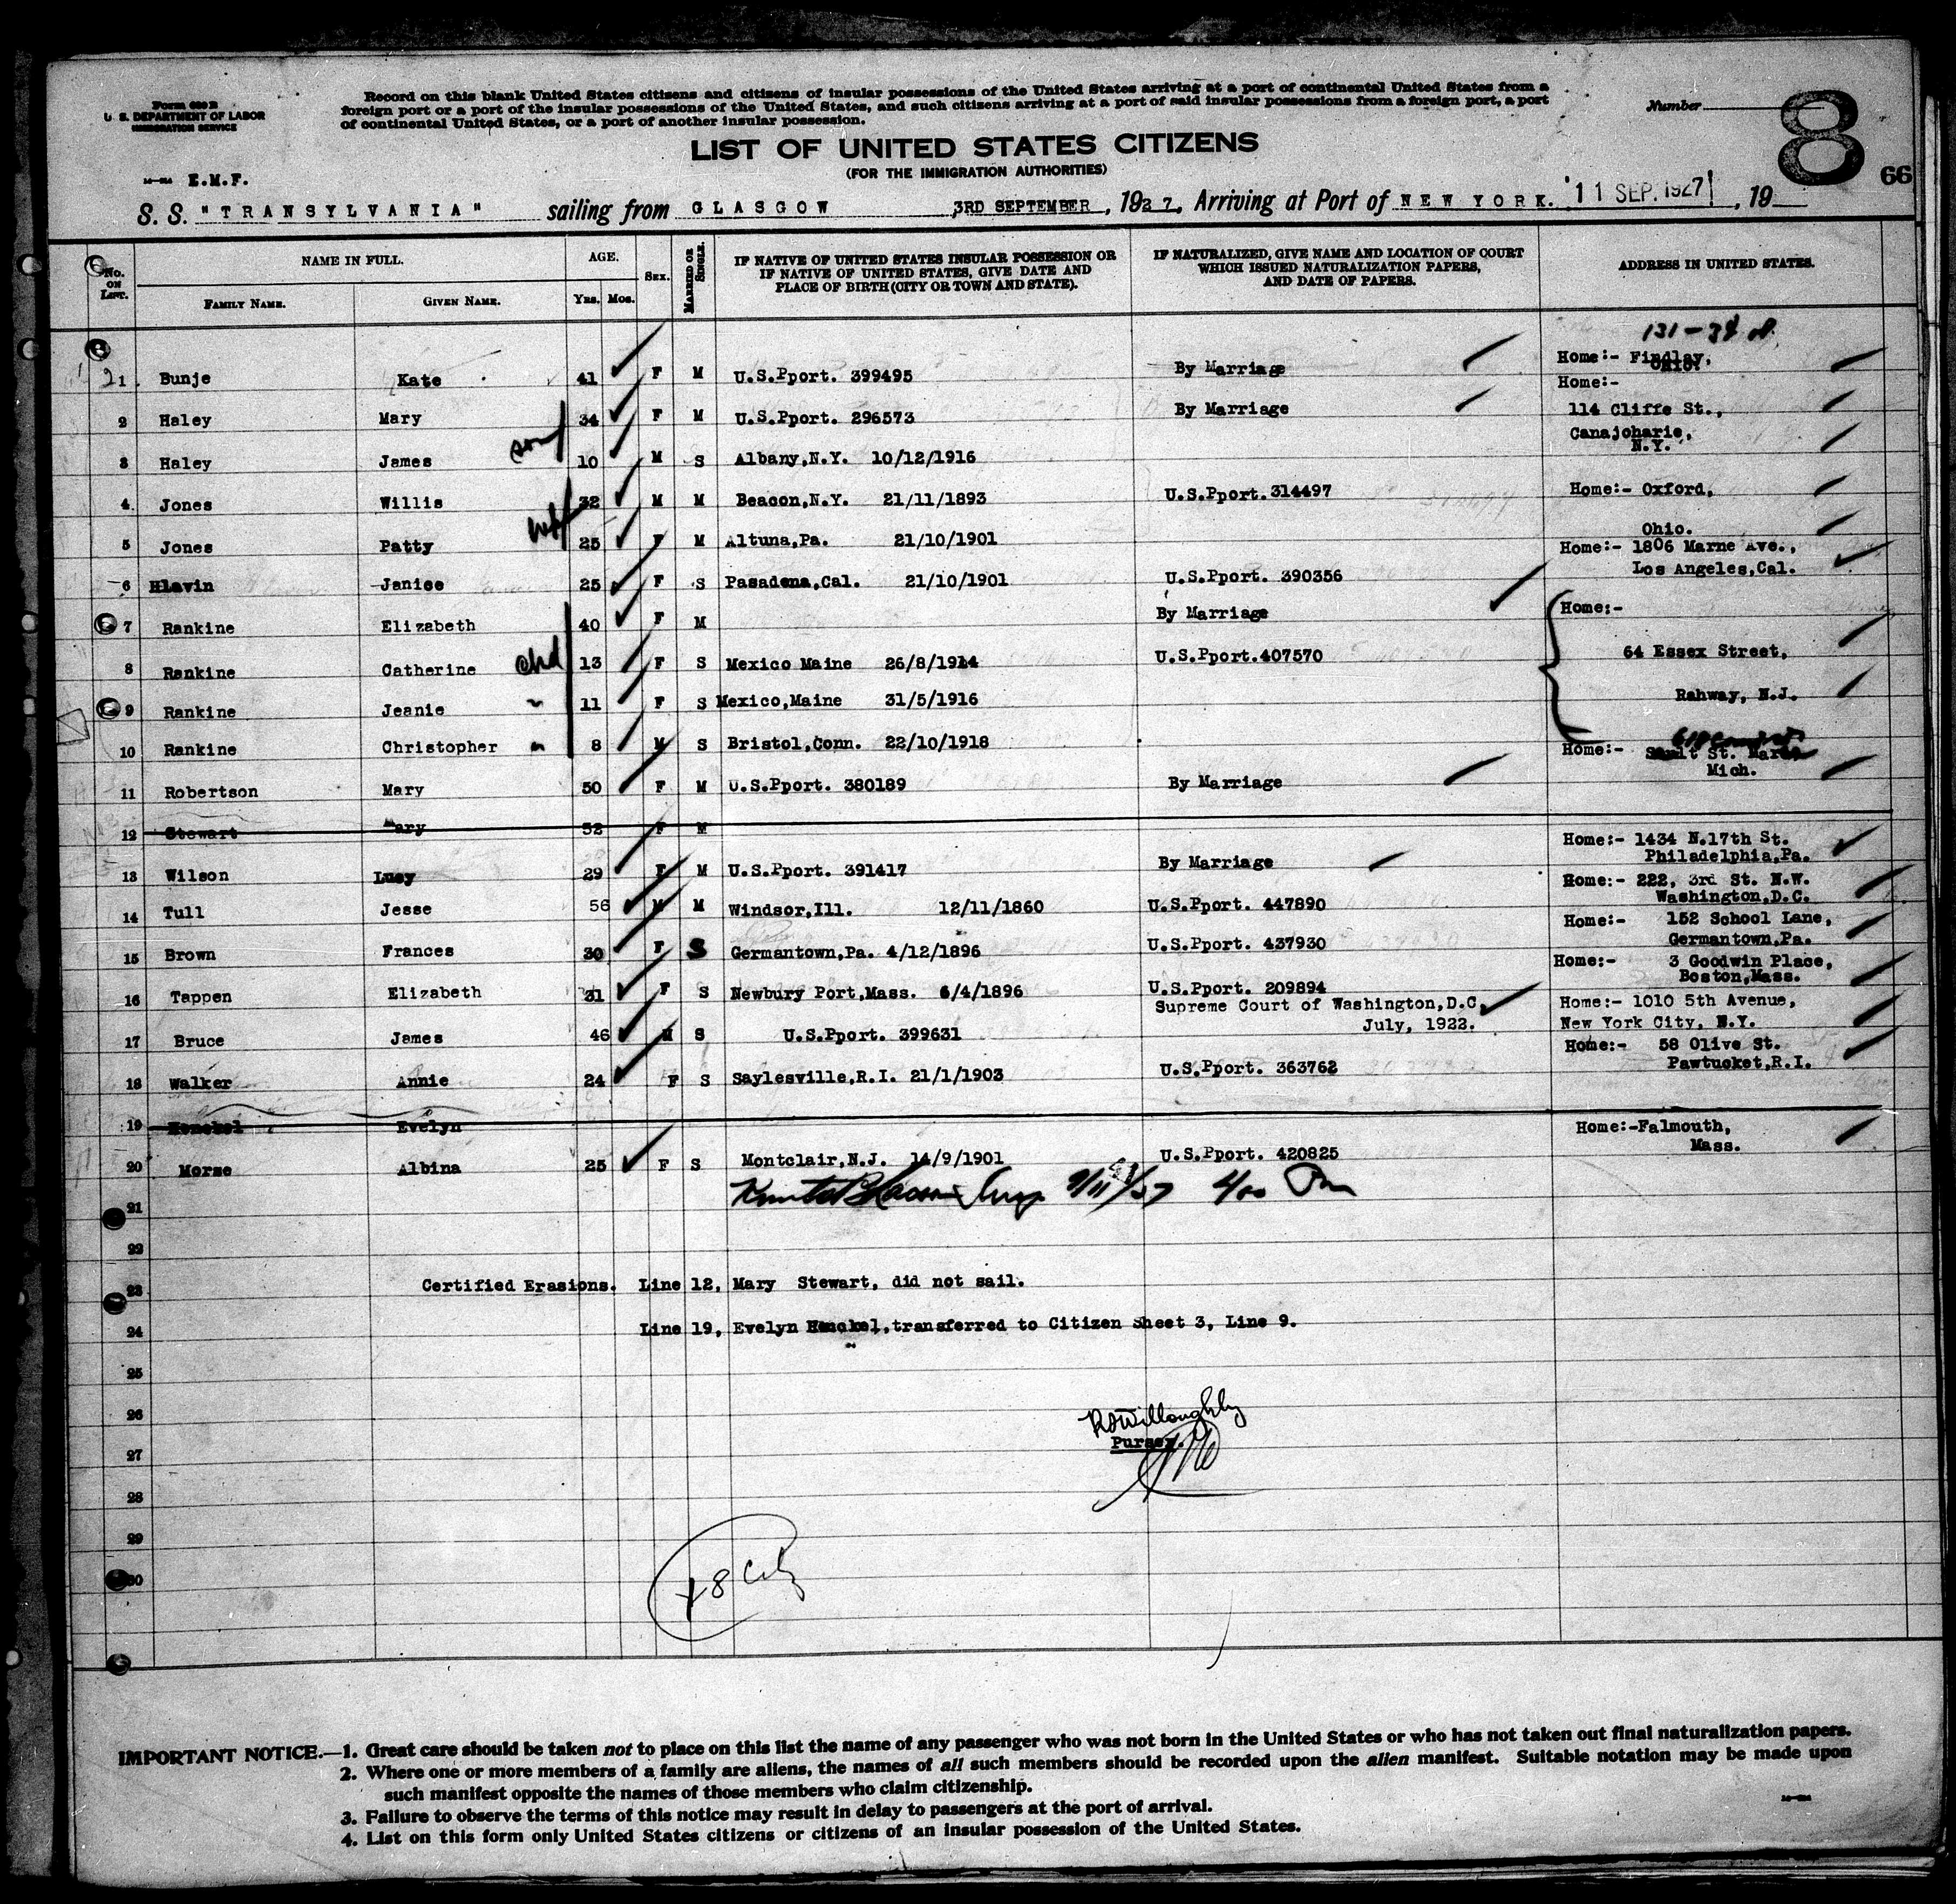 Form 630 B
U. S. DEPARTMENT OF LABOR
IMMIGRATION SERVICE
Record on this blank United States citizens and citizens of insular possessions of the United States arriving at a port of continental United States from a
foreign port or a port of the insular possessions of the United States, and such citizens arriving at a port of said insular possessions from a foreign port, a port
of continental United States, or a port of another insular possession.
Number 8
66
LIST OF UNITED STATES CITIZENS
(FOR THE IMMIGRATION AUTHORITIES)
E.M.F.
S. S. "TRANSYLVANIA" sailing from GLASGOW 3RD SEPTEMBER, 1927, Arriving at Port of NEW YORK. 11 SEP. 1927, 19
No. ON LIST. NAME IN FULL. AGE. SEX. MARRIED OR SINGLE. IF NATIVE OF UNITED STATES INSULAR POSSESSION OR IF NATIVE OF UNITED STATES, GIVE DATE AND PLACE OF BIRTH (CITY OR TOWN AND STATE). IF NATURALIZED, GIVE NAME AND LOCATION OF COURT WHICH ISSUED NATURALIZATION PAPERS, AND DATE OF PAPERS. ADDRESS IN UNITED STATES.
FAMILY NAME. GIVEN NAME. YRS. MOS.
1 Bunje Kate 41 F M U.S.Pport. 399495 By Marriage Home:- Findlay, Ohio.
2 Haley Mary 34 F M U.S.Pport. 296573 By Marriage Home:- 114 Cliffe St.,
3 Haley James son 10 M S Albany,N.Y. 10/12/1916 Canajoharie, N.Y.
4 Jones Willis 32 M M Beacon,N.Y. 21/11/1893 U.S.Pport.314497 Home:- Oxford,
5 Jones Patty 25 F M Altuna,Pa. 21/10/1901 Ohio.
6 Hlavin Janice 25 F S Pasadena,Cal. 21/10/1901 U.S.Pport. 390356 Home:- 1806 Marne Ave., Los Angeles,Cal.
7 Rankine Elizabeth 40 F M By Marriage Home:-
8 Rankine Catherine chd 13 F S Mexico Maine 26/8/1914 U.S.Pport.407570 64 Essex Street,
9 Rankine Jeanie 11 F S Mexico,Maine 31/5/1916 Rahway, N.J.
10 Rankine Christopher 8 M S Bristol,Conn. 22/10/1918
11 Robertson Mary 50 F M U.S.Pport. 380189 By Marriage Home:- Sault St. Marie Mich.
12 Stewart Mary 52 F M
13 Wilson Lucy 29 F M U.S.Pport. 391417 By Marriage Home:- 1434 N.17th St. Philadelphia,Pa.
14 Tull Jesse 56 M M Windsor,Ill. 12/11/1860 U.S.Pport. 447890 Home:- 222, 3rd St. N.W. Washington,D.C.
15 Brown Frances 30 F S Germantown,Pa. 4/12/1896 U.S.Pport. 437930 Home:- 152 School Lane, Germantown,Pa.
16 Tappen Elizabeth 31 F S Newbury Port,Mass. 6/4/1896 U.S.Pport. 209894 Home:- 3 Goodwin Place, Boston,Mass.
17 Bruce James 46 M S U.S.Pport. 399631 Supreme Court of Washington,D.C. July, 1922. Home:- 1010 5th Avenue, New York City, N.Y.
18 Walker Annie 24 F S Saylesville,R.I. 21/1/1903 U.S.Pport. 363762 Home:- 58 Olive St. Pawtucket,R.I.
19 Evelyn
20 Morse Albina 25 F S Montclair,N.J. 14/9/1901 U.S.Pport. 420825 Home:-Falmouth, Mass.
21 9/11/27 4/00 Pm
22
23 Certified Erasions. Line 12, Mary Stewart, did not sail.
24 Line 19, Evelyn Henckel,transferred to Citizen Sheet 3, Line 9.
25
26 Willoughby
27 Purser.
28
29
30
IMPORTANT NOTICE.—1. Great care should be taken not to place on this list the name of any passenger who was not born in the United States or who has not taken out final naturalization papers.
2. Where one or more members of a family are aliens, the names of all such members should be recorded upon the alien manifest. Suitable notation may be made upon
such manifest opposite the names of those members who claim citizenship.
3. Failure to observe the terms of this notice may result in delay to passengers at the port of arrival.
4. List on this form only United States citizens or citizens of an insular possession of the United States.